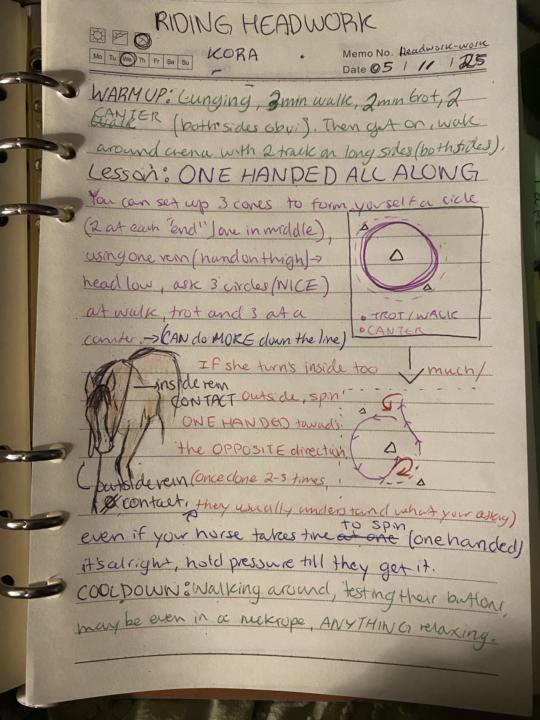 RIDING HEADWORK
Mo Tu We Th Fr Sa Su
KORA
Memo No. Headwork-work
Date 05 / 11 / 25
WARMUP: Lunging, 2min walk, 2min trot, 2
CANTER (both sides obvi). Then get on, walk
around arena with 2 track on long sides (both sides).
Lesson: ONE HANDED ALL ALONG
You can set up 3 cones to form yourself a circle
(2 at each "end" 1 one in middle),
using one rein (hand on thigh) →
head low, ask 3 circles (NICE)
at walk, trot and 3 at a
canter. → (CAN do MORE down the line)
• TROT/WALK
• CANTER
If she turn's inside too much/
inside rein
CONTACT outside, spin
ONE HANDED towards
the OPPOSITE direction
outside rein (once done 2-3 times,
Ø contact, they usually understand what your asking)
even if your horse takes time at one to spin (one handed)
it's alright, hold pressure till they get it.
COOLDOWN: Walking around, testing their buttons,
maybe even in a neckrope, ANYTHING relaxing.